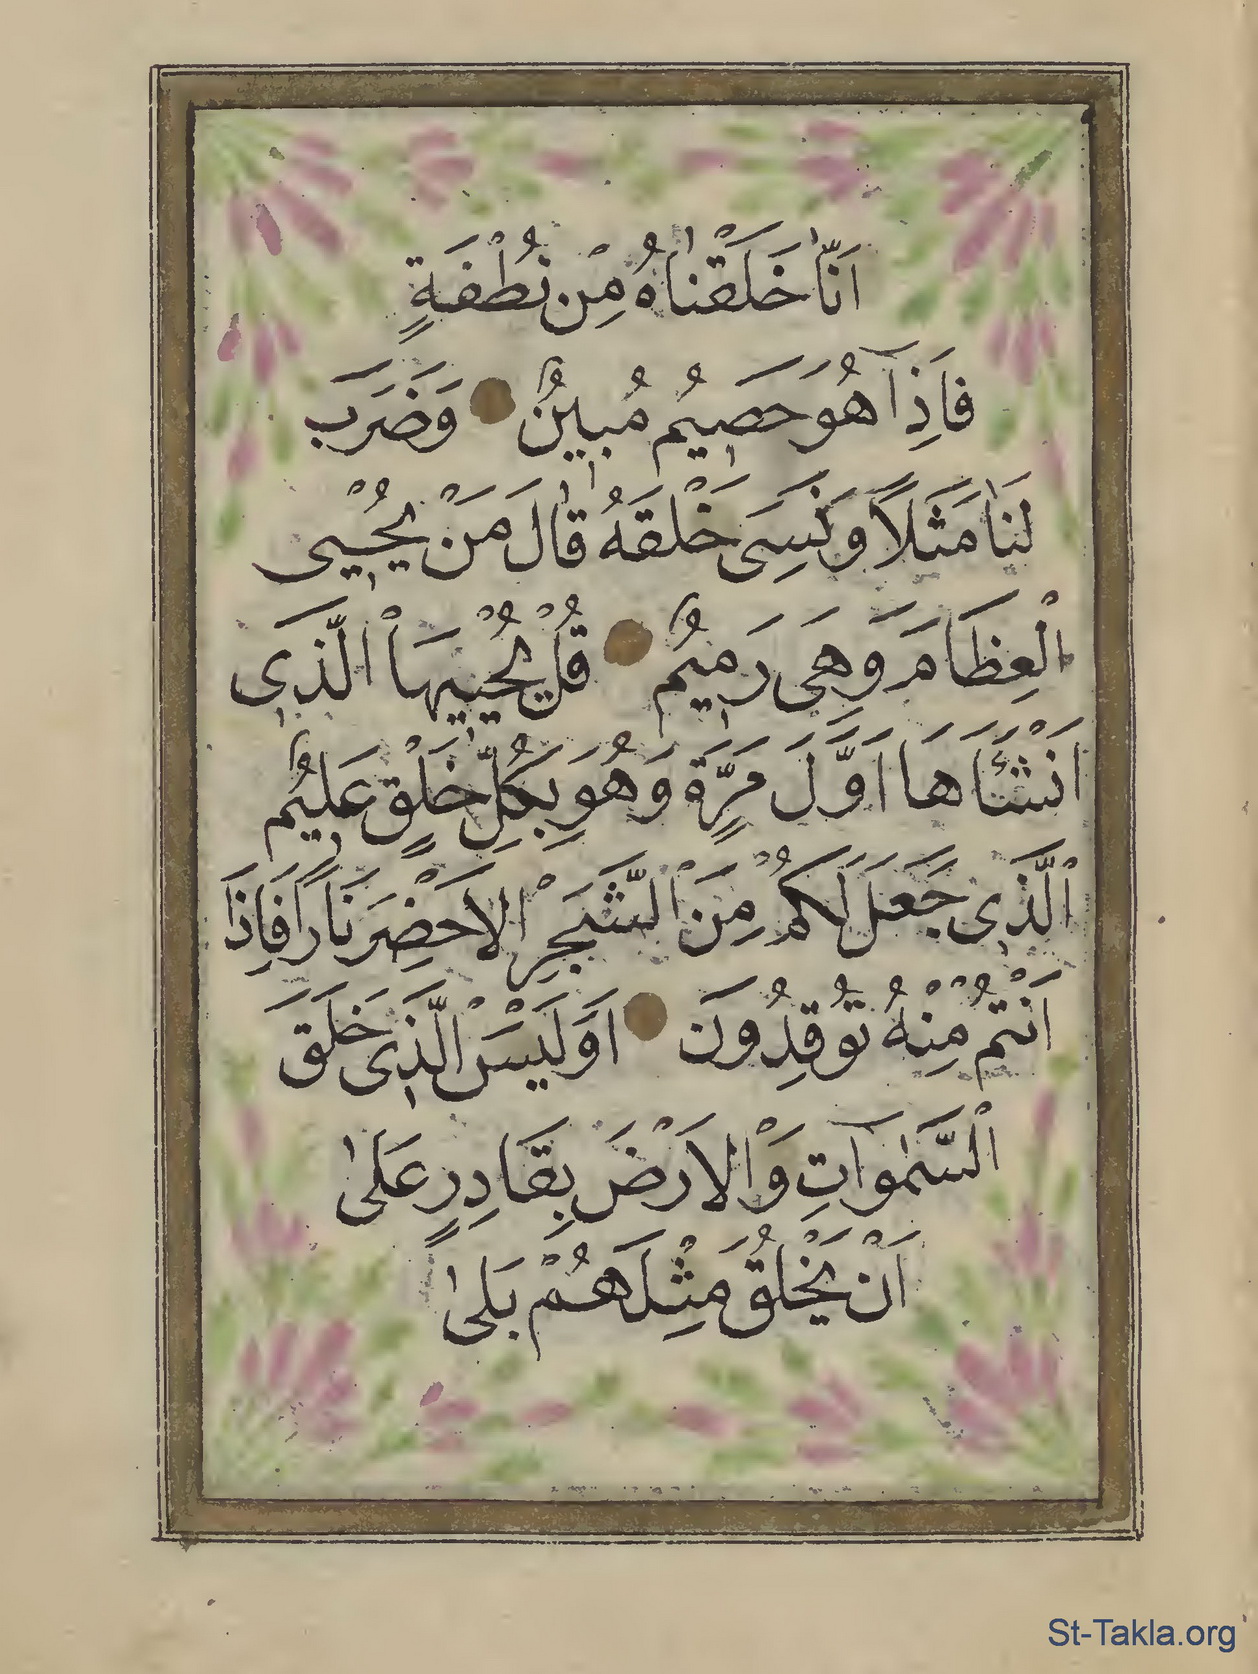 اَنَّا خَلَقْنَاهُ مِنْ نُطْفَةٍ
فَاِذَٓا هُوَ خَصٖيمٌ مُبٖينٌ وَضَرَبَ
لَنَا مَثَلًا وَنَسِىَ خَلْقَهُ قَالَ مَنْ يُحْيِى
الْعِظَامَ وَهِىَ رَمٖيمٌ قُلْ يُحْيٖيهَا الَّذٖى
اَنْشَاَهَا اَوَّلَ مَرَّةٍ وَهُوَ بِكُلِّ خَلْقٍ عَلٖيمٌ
اَلَّذٖى جَعَلَ لَكُمْ مِنَ الشَّجَرِ الْاَخْضَرِ نَارًا فَاِذَا
اَنْتُمْ مِنْهُ تُوقِدُونَ اَوَلَيْسَ الَّذٖى خَلَقَ
السَّمٰوَاتِ وَالْاَرْضَ بِقَادِرٍ عَلٰى
اَنْ يَخْلُقَ مِثْلَهُمْ بَلٰى
St-Takla.org